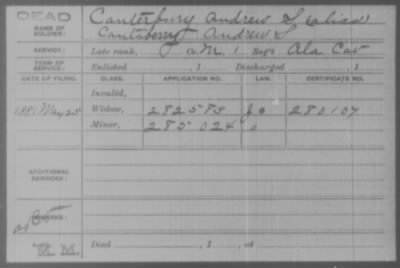 DEAD
NAME OF SOLDIER: Canterbury Andrew S (alias)
Canteberry Andrew S
SERVICE: Late rank, M, 1 Reg't Ala Cav
TERM OF SERVICE: Enlisted , 1 Discharged , 1
DATE OF FILING. CLASS. APPLICATION NO. LAW. CERTIFICATE NO.
Invalid,
1881 May 25 Widow, 282585 280107
Minor, 285024
ADDITIONAL SERVICES:
REMARKS:
Died , 1 , at